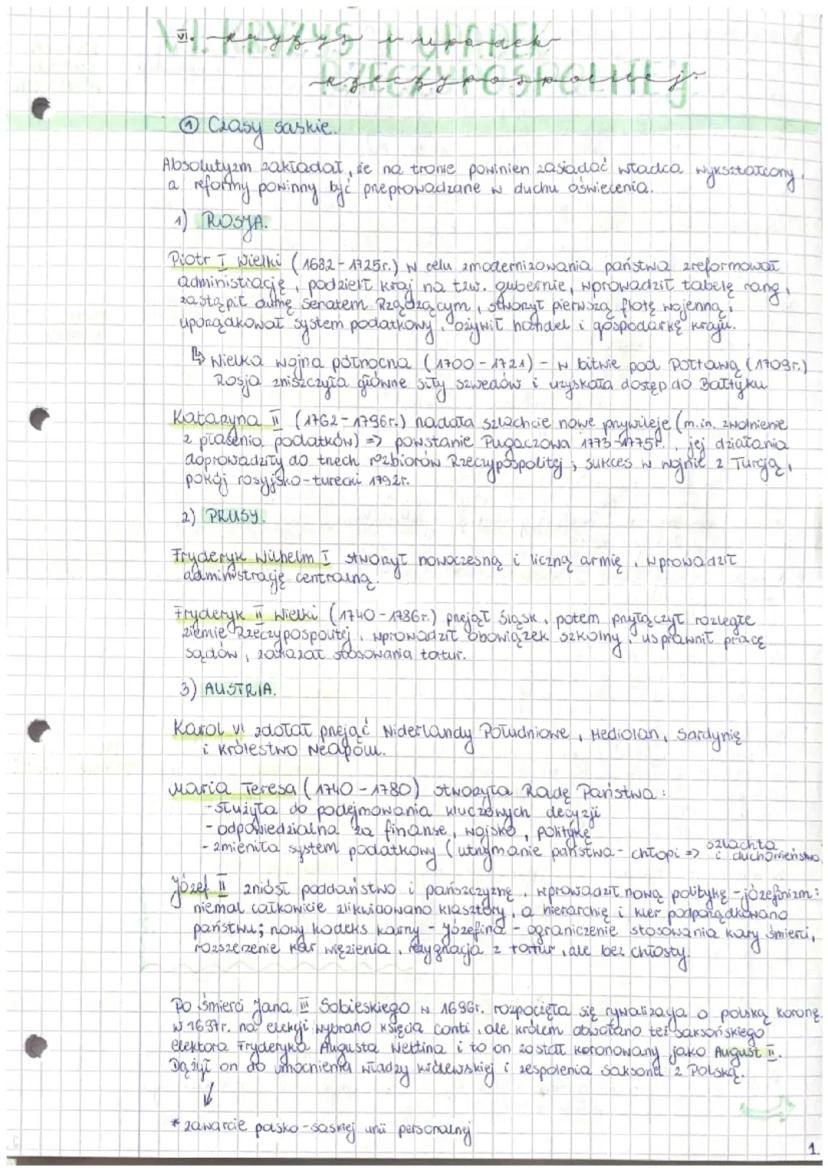 VI. kryzys i upadek
rzeczypospolitej.
① Czasy saskie.
Absolutyzm zakładał, że na tronie powinien zasiadać władca wykształcony,
a reformy powinny być przeprowadzane w duchu oświecenia.
1) ROSJA.
Piotr I Wielki (1682-1725r.) w celu zmodernizowania państwa zreformował
administrację, podzielił kraj na tzw. gubernie, wprowadził tabelę rang,
zastąpił dumę Senatem Rządzącym, stworzył pierwszą flotę wojenną,
uporządkował system podatkowy, ożywił handel i gospodarkę kraju.
↳ Wielka wojna północna (1700-1721) - w bitwie pod Połtawą (1709r.)
Rosja zniszczyła główne siły szwedów i uzyskała dostęp do Bałtyku
Katarzyna II (1762-1796r.) nadała szlachcie nowe przywileje (m.in. zwolnienie
z płacenia podatków) => powstanie Pugaczowa 1773-1775r., jej działania
doprowadziły do trzech rozbiorów Rzeczypospolitej, sukces w wojnie z Turcją,
pokój rosyjsko-turecki 1792r.
2) PRUSY.
Fryderyk Wilhelm I stworzył nowoczesną i liczną armię, wprowadził
administrację centralną.
Fryderyk II Wielki (1740-1786r.) przejął Śląsk, potem przyłączył rozległe
ziemie Rzeczypospolitej, wprowadził obowiązek szkolny, usprawnił pracę
sądów, zakazał stosowania tortur.
3) AUSTRIA.
Karol VI zdołał przejąć Niderlandy Południowe, Mediolan, Sardynię
i Królestwo Neapolu.
Maria Teresa (1740-1780) stworzyła Radę Państwa:
- służyła do podejmowania kluczowych decyzji
- odpowiedzialna za finanse, wojsko, politykę
- zmieniła system podatkowy (utrzymanie państwa - chłopi => szlachta
i duchowieństwo
Józef II zniósł poddaństwo i pańszczyznę, wprowadził nową politykę - józefinizm:
niemal całkowicie zlikwidowano klasztory, a hierarchię i kler podporządkowano
państwu; nowy kodeks karny - józefina - ograniczenie stosowania kary śmierci,
rozszerzenie kar więzienia, rezygnacja z tortur, ale bez chłosty.
Po śmierci Jana III Sobieskiego w 1696r. rozpoczęła się rywalizacja o polską koronę.
W 1697r. na elekcji wybrano księcia conti, ale królem obwołano też saksońskiego
elektora Fryderyka Augusta Wettina i to on został koronowany jako August II.
Dążył on do umocnienia władzy królewskiej i zespolenia Saksonii z Polską.
↓
* zawarcie polsko-saskiej unii personalnej
1